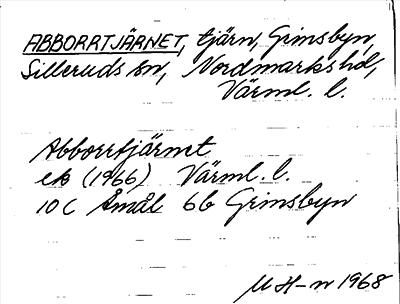 ABBORRTJÄRNET, tjärn, Grinsbyn,
Silleruds sn, Nordmarks hd,
Värml. l.
Abborrtjärnet
ek (1966) Värml. l.
10 C Åmål 6b Grinsbyn
M H-n 1968